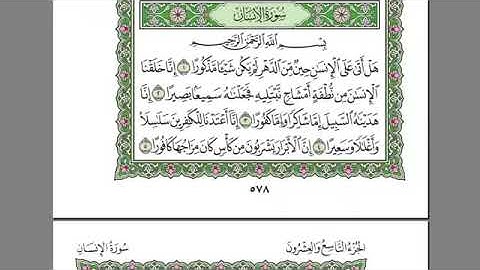 سُورَةُ الإِنسَانِ
بِسْمِ اللَّهِ الرَّحْمَٰنِ الرَّحِيمِ
هَلْ أَتَىٰ عَلَى الْإِنسَٰنِ حِينٌ مِّنَ الدَّهْرِ لَمْ يَكُن شَيْـًٔا مَّذْكُورًا ١ إِنَّا خَلَقْنَا
الْإِنسَٰنَ مِن نُّطْفَةٍ أَمْشَاجٍ نَّبْتَلِيهِ فَجَعَلْنَٰهُ سَمِيعًۢا بَصِيرًا ٢ إِنَّا
هَدَيْنَٰهُ السَّبِيلَ إِمَّا شَاكِرًا وَإِمَّا كَفُورًا ٣ إِنَّآ أَعْتَدْنَا لِلْكَٰفِرِينَ سَلَٰسِلَا۟
وَأَغْلَٰلًا وَسَعِيرًا ٤ إِنَّ الْأَبْرَارَ يَشْرَبُونَ مِن كَأْسٍ كَانَ مِزَاجُهَا كَافُورًا ٥
٥٧٨
الجُزْءُ التَّاسِعُ وَالعِشْرُونَ
سُورَةُ الإِنسَانِ